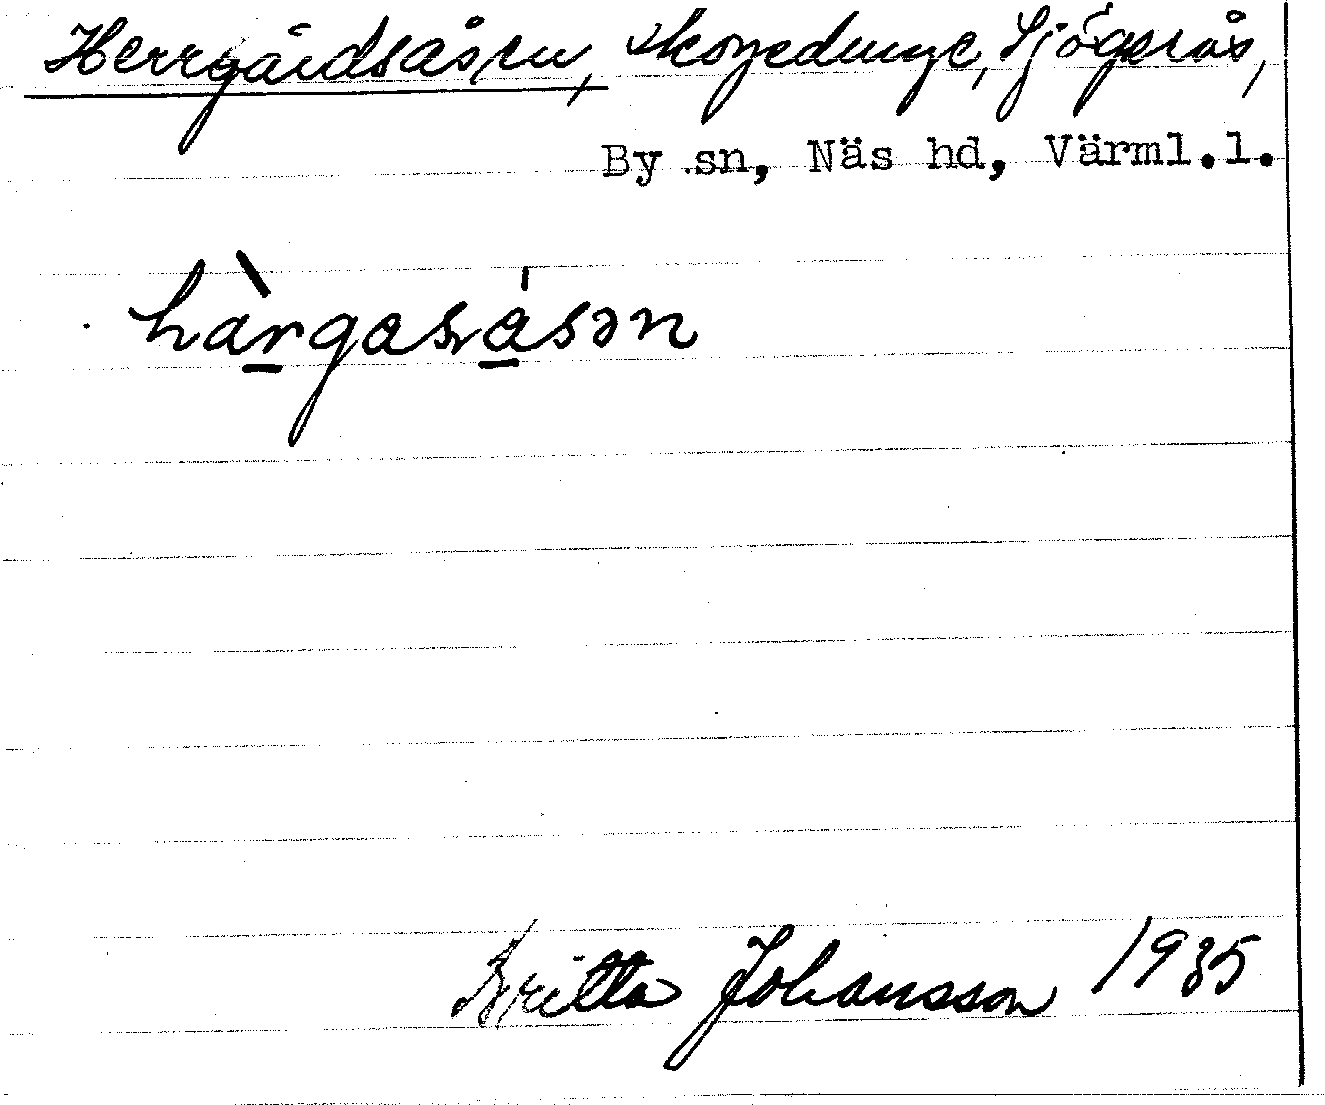 Herrgårdsåsen, skogsdunge, Sjögerås,
By sn, Näs hd, Värml.l.
hàrgasåsən
Britta Johansson 1935